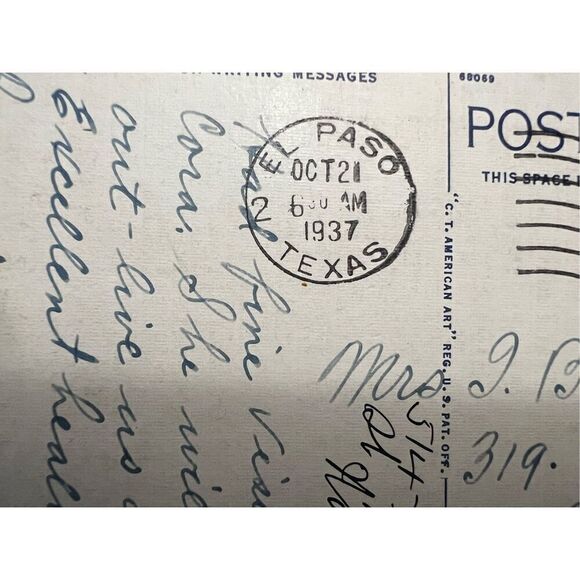 OR WRITING MESSAGES
68069
POST
THIS SPACE
EL PASO
OCT 21
2 6 00 AM
1937
TEXAS
"C. T. AMERICAN ART" REG. U. S. PAT. OFF.
fine visi
Cora. She wil
out-live us
Excellent heal
Mrs. I. B
319.
514